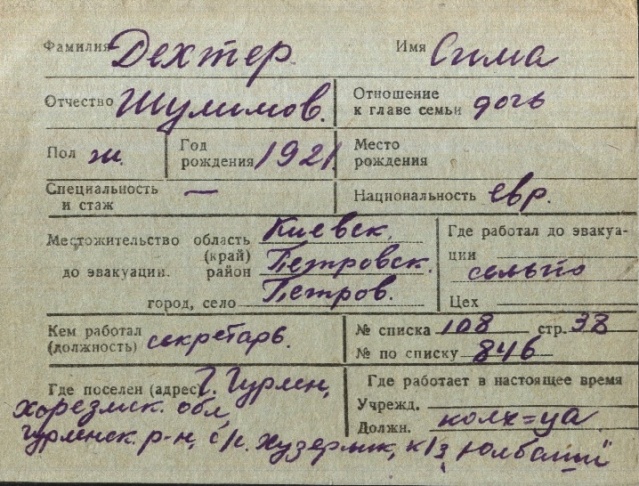 Фамилия Дехтер Имя Сима
Отчество Шулимов. Отношение к главе семьи дочь
Пол ж. Год рождения 1921 Место рождения
Специальность и стаж — Национальность евр.
Местожительство область Киевск. Где работал до эвакуа-
(край) ции
до эвакуации. район Петровск. сельпо
город, село Петров. Цех
Кем работал (должность) секретарь. № списка 108 стр. 38
№ по списку 846
Где поселен (адрес) г. Гурлен, Где работает в настоящее время
Хорезмск. обл, Учрежд.
Гурленск. р-н, с/с. к/з Должн. колх=ца